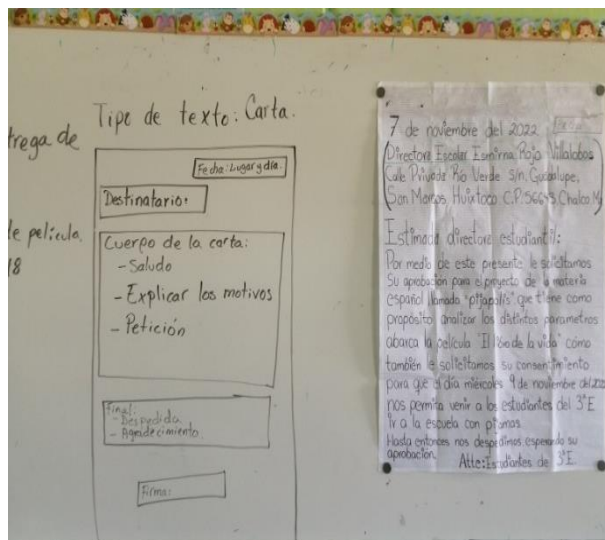 trega de
le película.
18
Tipo de texto: Carta.
Fecha: Lugar y día.
Destinatario:
Cuerpo de la carta:
- Saludo
- Explicar los motivos
- Petición
Final:
- Despedida.
- Agradecimiento.
Firma:
7 de noviembre del 2022
(Directore Escolar Esmirna Rojo Villalobos
Calle Privada Río Verde s/n, Guadalupe,
San Marcos Huixtoco C.P. Chalco
Estimada directore estudiantil:
Por medio de este presente le solicitamos
su aprobación para el proyecto de la materia
español llamada "pijapolis" que tiene como
propósito analizar los distintos parametros
abarca la película "El libo de la vida" como
también le solicitamos su consentimiento
para que el día miércoles 9 de noviembre del 2022
nos permita venir a los estudiantes del 3°E
ir a la escuela con pijamas.
Hasta entonces nos despedimos esperando su
aprobación.
Atte: Estudiantes de 3°E